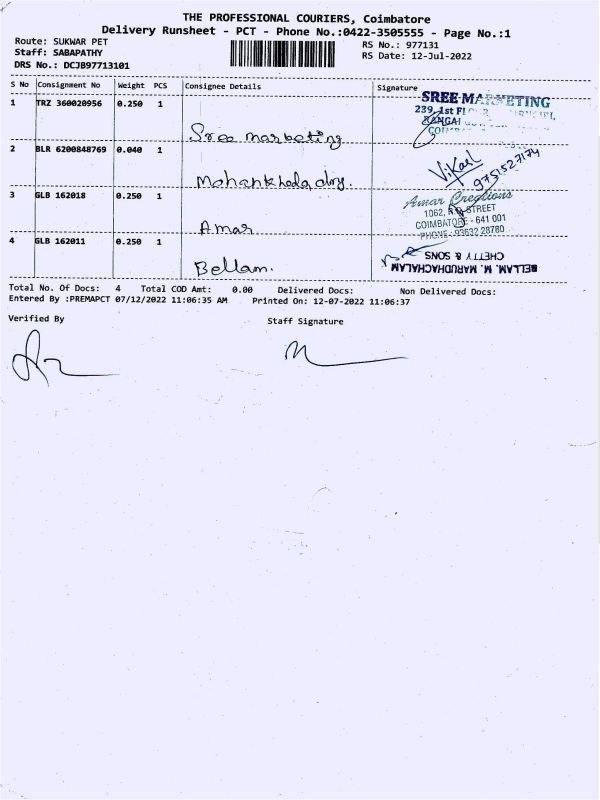 THE PROFESSIONAL COURIERS, Coimbatore
Delivery Runsheet - PCT - Phone No.:0422-3505555 - Page No.:1
Route: SUKWAR PET
RS No.: 977131
Staff: SABAPATHY
RS Date: 12-Jul-2022
DRS No.: DCJB97713101
S No Consignment No Weight PCS Consignee Details Signature
1 TRZ 360020956 0.250 1 Sree marketing
SREE MARKETING
239, 1st
2 BLR 6200848769 0.040 1
V.Kasl 9751527174
3 GLB 162018 0.250 1 Amar
Amar Creations
1062, STREET
COIMBATORE - 641 001
PHONE : 93632 28780
4 GLB 162011 0.250 1 Bellam.
BELLAM. M. MARUDHACHALAM
CHETTY & SONS
Total No. Of Docs: 4 Total COD Amt: 0.00 Delivered Docs: Non Delivered Docs:
Entered By :PREMAPCT 07/12/2022 11:06:35 AM Printed On: 12-07-2022 11:06:37
Verified By Staff Signature